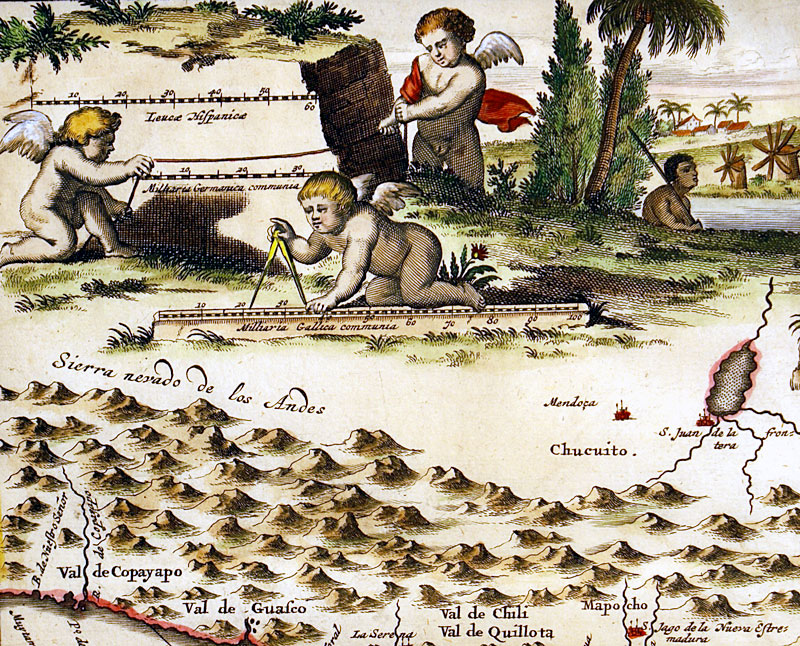 10 20 30 40 50 60
Leucæ Hispanicæ
10 20 30
Milliaria Germanica communia
10 20 30 50 60 70 80 90 100
Milliaria Gallica communia
Sierra nevado de los Andes
Mendoça
S. Juan de la fron-
tera
Chucuito.
Val de Copayapo
R. de Copayapo
Val de Guasco
La Serena
Val de Chili
Val de Quillota
Mapocho
S. Jago de la Nueva Estre
madura